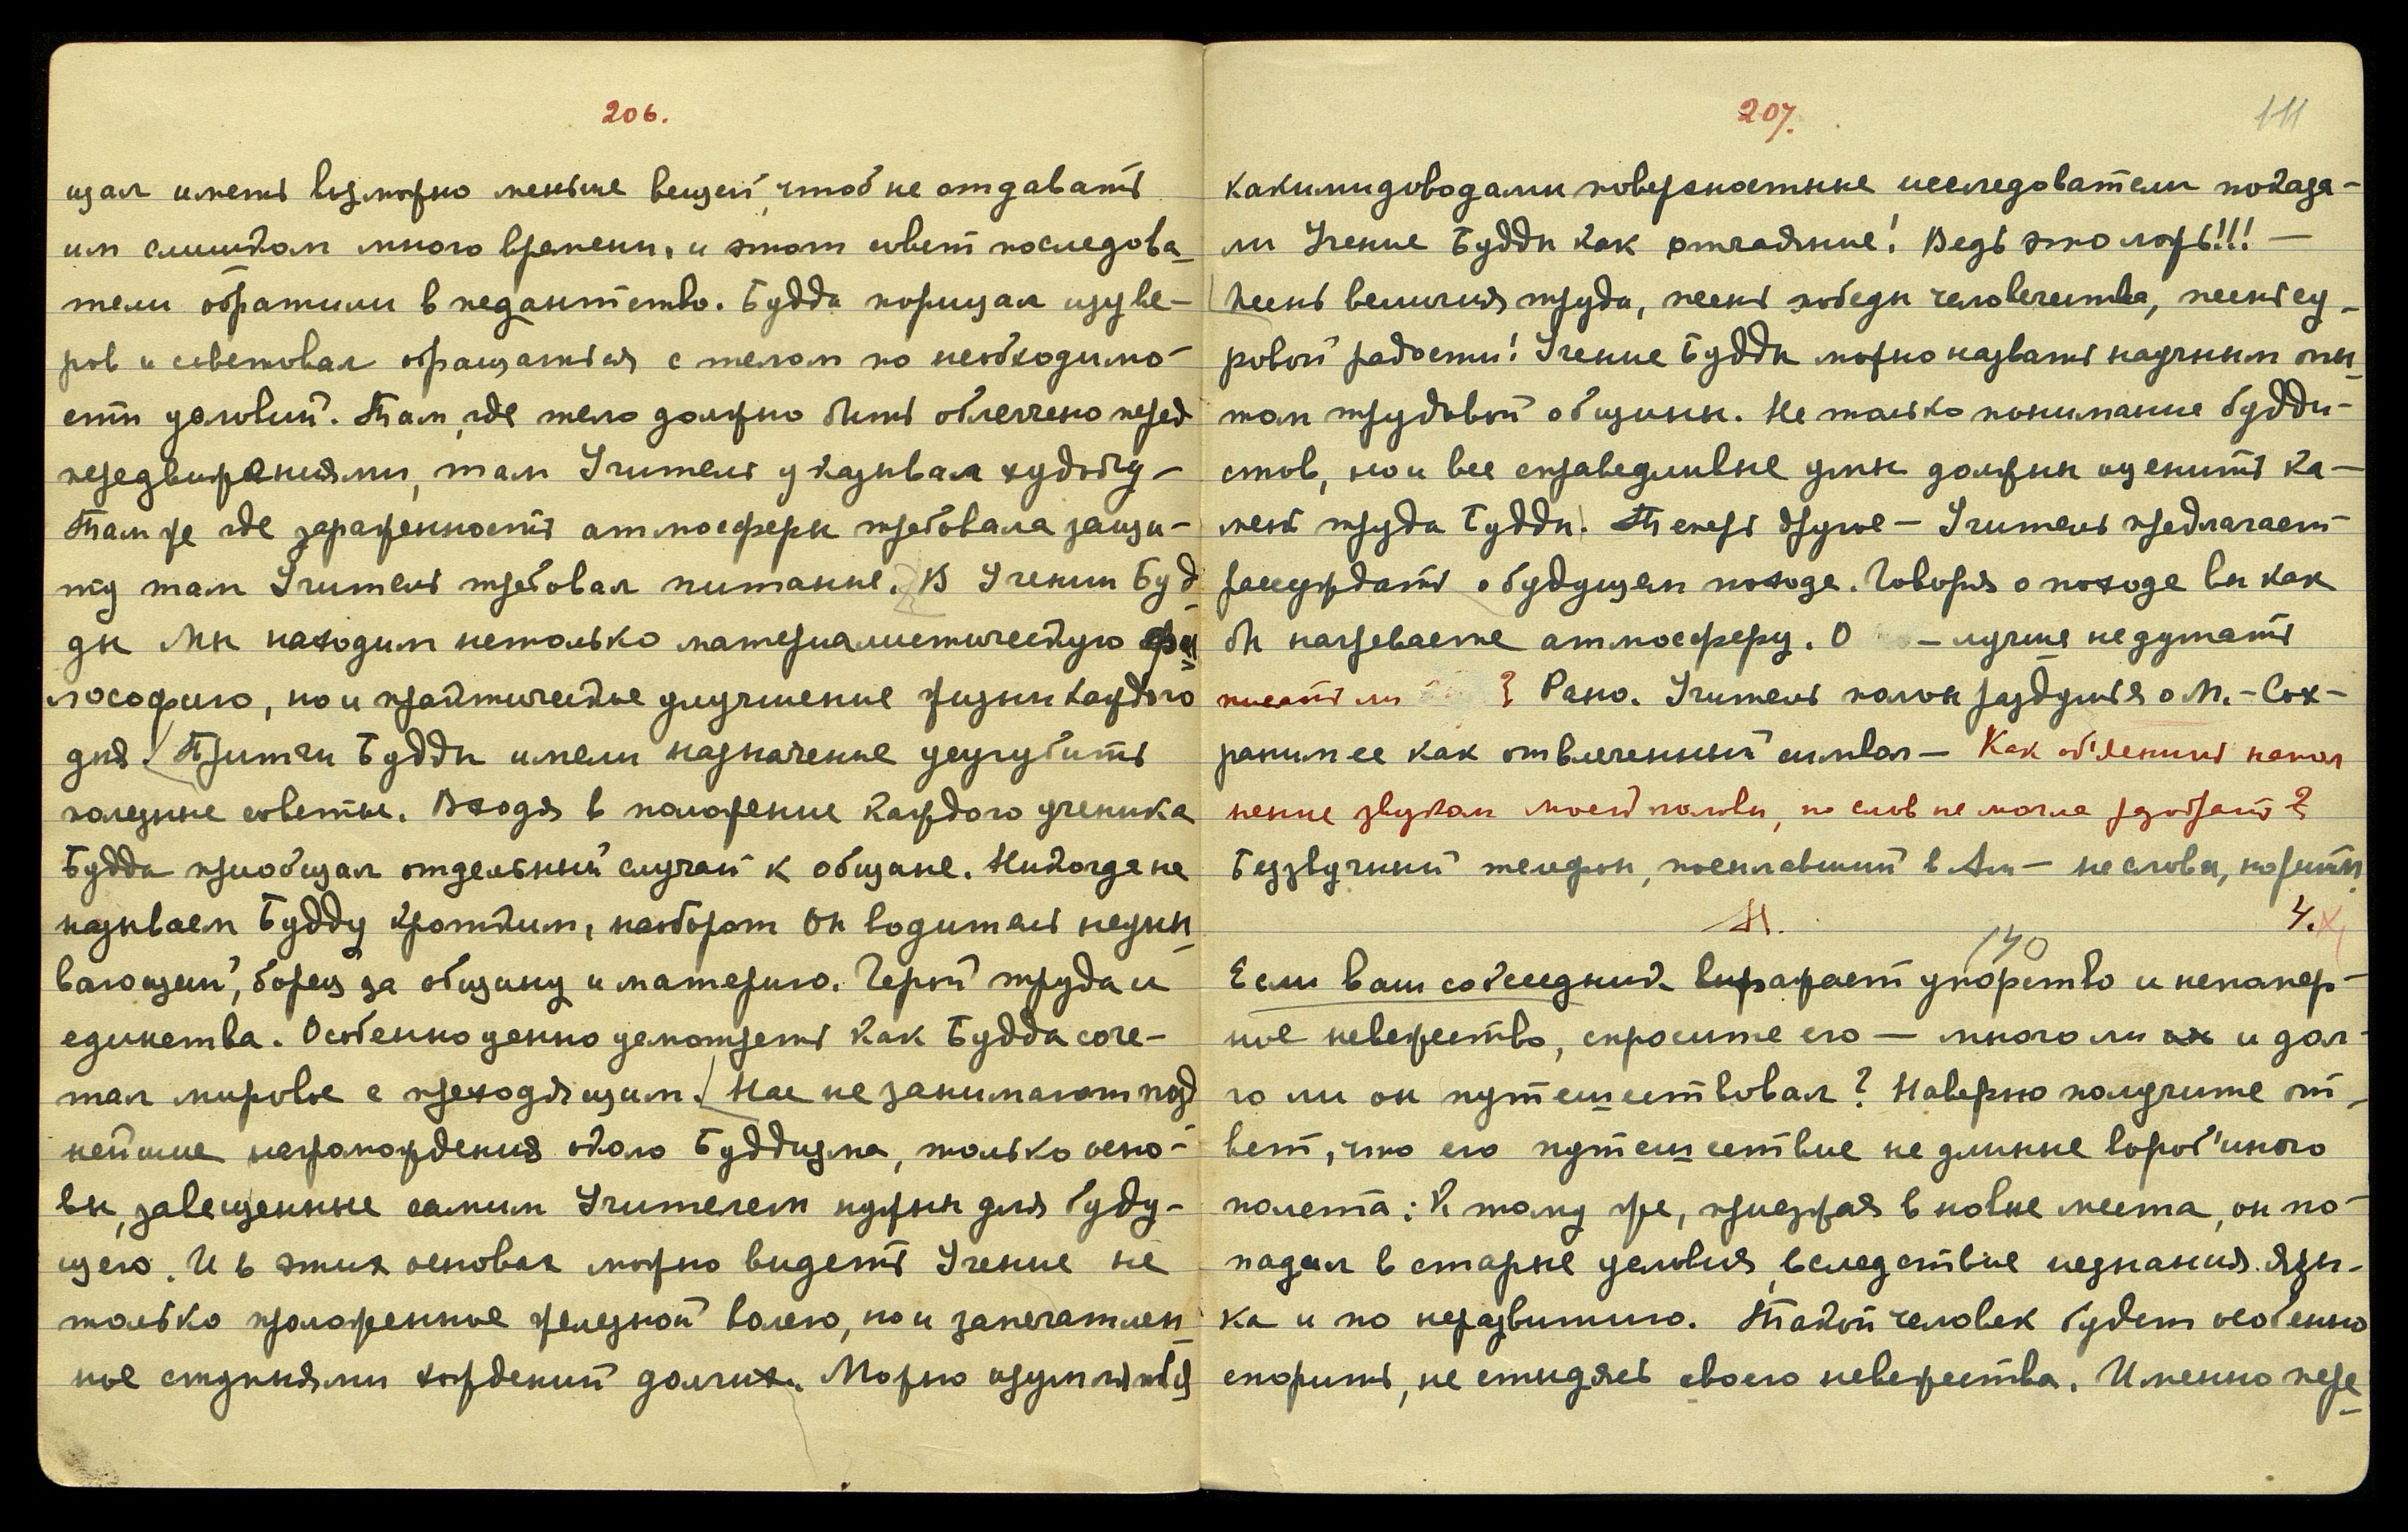 206.
щал иметь возможно меньше вещей, чтоб не отдавать
им слишком много времени, и этот совет последова-
тели обратили в педантство. Будда порицал изуве-
ров и советовал обращаться с телом по необходимо-
сти условий. Там, где тело должно быть облегчено перед
передвижениями, там Учитель указывал худобу –
Там же где зараженность атмосферы требовала защи-
ту там Учитель требовал питание. В Учении Буд-
ды Мы находим не только материалистическую фи-
лософию, но и практическое улучшение жизни каждого
дня. Притчи Будды имели назначение усугубить
полезные советы. Входя в положение каждого ученика
Будда приобщал отдельный случай к общине. Никогда не
называем Будду кротким, наоборот Он водитель неуны-
вающий, борец за общину и материю. Герой труда и
единства. Особенно ценно усмотреть как Будда соче-
тал мировое с преходящим. Нас не занимают позд
нейшие нагромождения около Буддизма, только осно-
вы, завещенные самим Учителем нужны для буду-
щего. И в этих основах можно видеть Учение не
только проложенное железной волею, но и запечатлен
ное ступнями хождений долгих. Можно изумляться
207.
111
какими доводами поверхностные исследователи показа-
ли Учение Будды как отчаяние! Ведь это ложь!!! –
Песнь величия труда, песнь победы человечества, песнь су-
ровой радости! Учение Будды можно назвать научным опы-
том трудовой общины. Не только понимание будди-
стов, но и все справедливые умы должны оценить ка-
мень труда Будды. Теперь другое – Учитель предлагает
рассуждать о будущем походе. Говоря о походе вы как
бы нагреваете атмосферу. О – лучше не думать
писать ли ? Рано. Учитель полон раздумья о М. – Сох-
раним ее как отвлеченный символ – Как объяснить напол
нение звуком моей головы, но слов не могла разобрать?
Беззвучный телефон, посылавший в Ам – не слова, но ритм
Н.
4. X
140
Если ваш собеседник выражает упорство и непомер-
ное невежество, спросите его – много ли и дол-
го ли он путешествовал? Наверно получите от-
вет, что его путешествие не длинне вороб'иного
полета; К тому же, приезжая в новые места, он по-
падал в старые условия, вследствие незнания язы-
ка и по неразвитию. Такой человек будет особенно
спорить, не стыдясь своего невежества. Именно пере